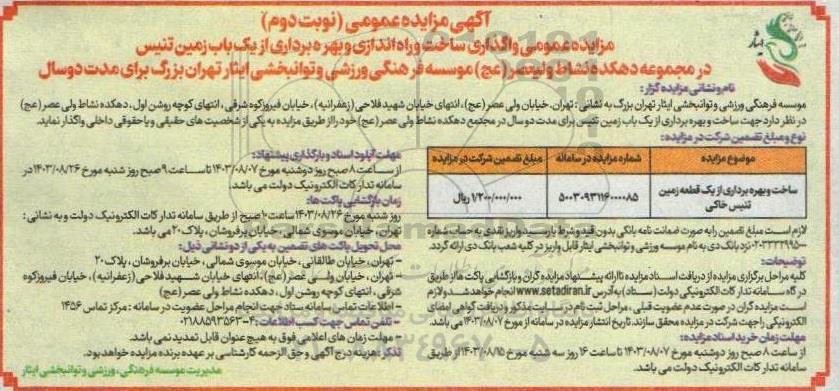 آگهی مزایده عمومی (نوبت دوم)
مزایده عمومی واگذاری ساخت و راه اندازی و بهره برداری از یک باب زمین تنیس
در مجموعه دهکده نشاط ولیعصر (عج) موسسه فرهنگی ورزشی و توانبخشی ایثار تهران بزرگ برای مدت دو سال
ایثار
نام و نشانی مزایده گزار:
موسسه فرهنگی ورزشی و توانبخشی ایثار تهران بزرگ به نشانی: تهران، خیابان ولی عصر (عج)، انتهای خیابان شهید فلاحی (زعفرانیه)، خیابان فیروزکوه شرقی، انتهای کوچه روشن اول، دهکده نشاط ولی عصر (عج)
در نظر دارد جهت ساخت و بهره برداری از یک باب زمین تنیس برای مدت دو سال در مجتمع دهکده نشاط ولی عصر (عج) خود را از طریق مزایده به یکی از شخصیت های حقیقی و یا حقوقی داخلی واگذار نماید.
نوع و مبلغ تضمین شرکت در مزایده:
موضوع مزایده | شماره مزایده در سامانه | مبلغ تضمین شرکت در مزایده
ساخت و بهره برداری از یک قطعه زمین تنیس خاکی | 5003093116000085 | 1/200/000/000 ریال
لازم است مبلغ تضمین را به صورت ضمانت نامه بانکی بدون قید و شرط یا رسید واریز نقدی به حساب شماره
203332995- نزد بانک دی به نام موسسه ورزشی و توانبخشی ایثار قابل واریز در کلیه شعب بانک دی ارائه گردد.
توضیحات:
کلیه مراحل برگزاری مزایده از دریافت اسناد مزایده تا ارائه پیشنهاد مزایده گران و بازگشایی پاکت ها از طریق
درگاه سامانه تدارکات الکترونیکی دولت (ستاد) به آدرس www.setadiran.ir انجام خواهد شد و لازم
است مزایده گران در صورت عدم عضویت قبلی، مراحل ثبت نام در سایت مذکور و دریافت گواهی امضای
الکترونیکی را جهت شرکت در مزایده محقق سازند. تاریخ انتشار مزایده در سامانه از مورخ 1403/08/07 می باشد.
مهلت زمان خرید اسناد مزایده:
از ساعت 8 صبح روز دوشنبه مورخ 1403/08/07 تا ساعت 16 روز سه شنبه مورخ 1403/08/15 از طریق
سامانه تدارکات الکترونیک دولت می باشد.
مهلت آپلود اسناد و بارگذاری پیشنهاد:
از ساعت 8 صبح روز دوشنبه مورخ 1403/08/07 تا ساعت 9 صبح روز شنبه مورخ 1403/08/26 در
سامانه تدارکات الکترونیک دولت می باشد.
زمان بازگشایی پاکت ها:
روز شنبه مورخ 1403/08/26 ساعت 10 صبح از طریق سامانه تدارکات الکترونیک دولت و به نشانی:
تهران، خیابان موسوی شمالی، خیابان پرفروشان، پلاک 20 می باشد.
محل تحویل پاکت های تضمین به یکی از دو نشانی ذیل:
- تهران، خیابان طالقانی، خیابان موسوی شمالی، خیابان پرفروشان، پلاک 20
- تهران، خیابان ولی عصر (عج)، انتهای خیابان شهید فلاحی (زعفرانیه)، خیابان فیروزکوه
شرقی، انتهای کوچه روشن اول، دهکده نشاط ولی عصر (عج)
- اطلاعات تماس سامانه ستاد جهت انجام مراحل عضویت در سامانه: مرکز تماس 1456
- تلفن تماس جهت کسب اطلاعات: 4-02188593563
- مهلت زمان های اعلامی فوق به هیچ عنوان قابل تمدید نمی باشد.
تذکر: هزینه درج آگهی و حق الزحمه کارشناسی بر عهده برنده مزایده خواهد بود.
مدیریت موسسه فرهنگی، ورزشی و توانبخشی ایثار